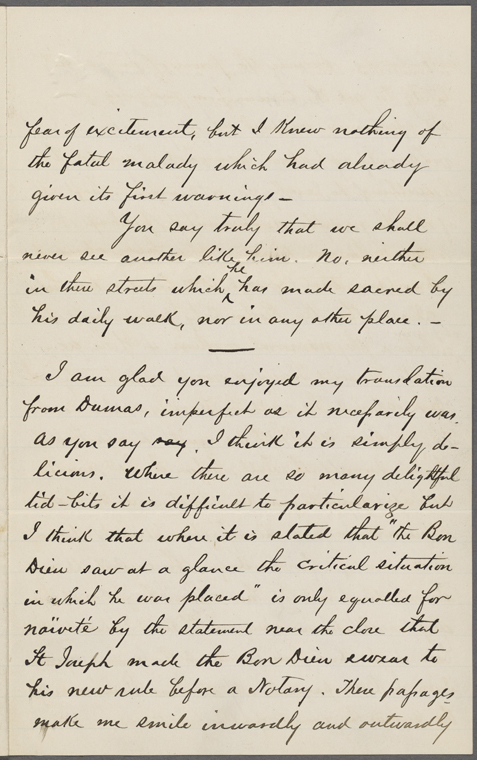 fear of excitement, but I knew nothing of
the fatal malady which had already
given its first warnings -
You say truly that we shall
never see another like him. No, neither
in these streets which he has made sacred by
his daily walk, nor in any other place. -
I am glad you enjoyed my translation
from Dumas, imperfect as it necessarily was.
As you say say, I think it is simply de-
licious. Where there are so many delightful
tid-bits it is difficult to particularize but
I think that where it is stated that "the Bon
Dieu saw at a glance the critical situation
in which he was placed" is only equalled for
naïveté by the statement near the close that
St Joseph made the Bon Dieu swear to
his new rule before a Notary. These passages
make me smile inwardly and outwardly